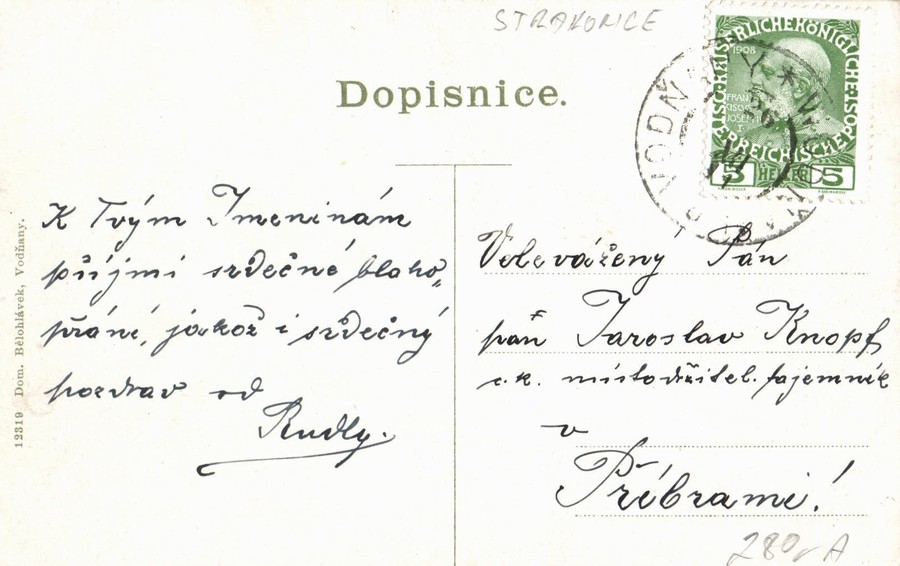 STRAKONICE
Dopisnice.
K Tvým Jmeninám
přijmi srdečné blaho„
přání, jakož i srdečný
pozdrav od
Rudly.
12319 Dom. Bělohlávek, Vodňany.
KAISERLICHE KÖNIGLICHE ÖSTERREICHISCHE POST
1908
FRANZ JOSEF I
5 HELLER 5
VODŇANY * WODŇAN
Velevážený Pán
pán Jaroslav Knopf
c.k. místodržitel. tajemník
v
Příbrami!
280,- A